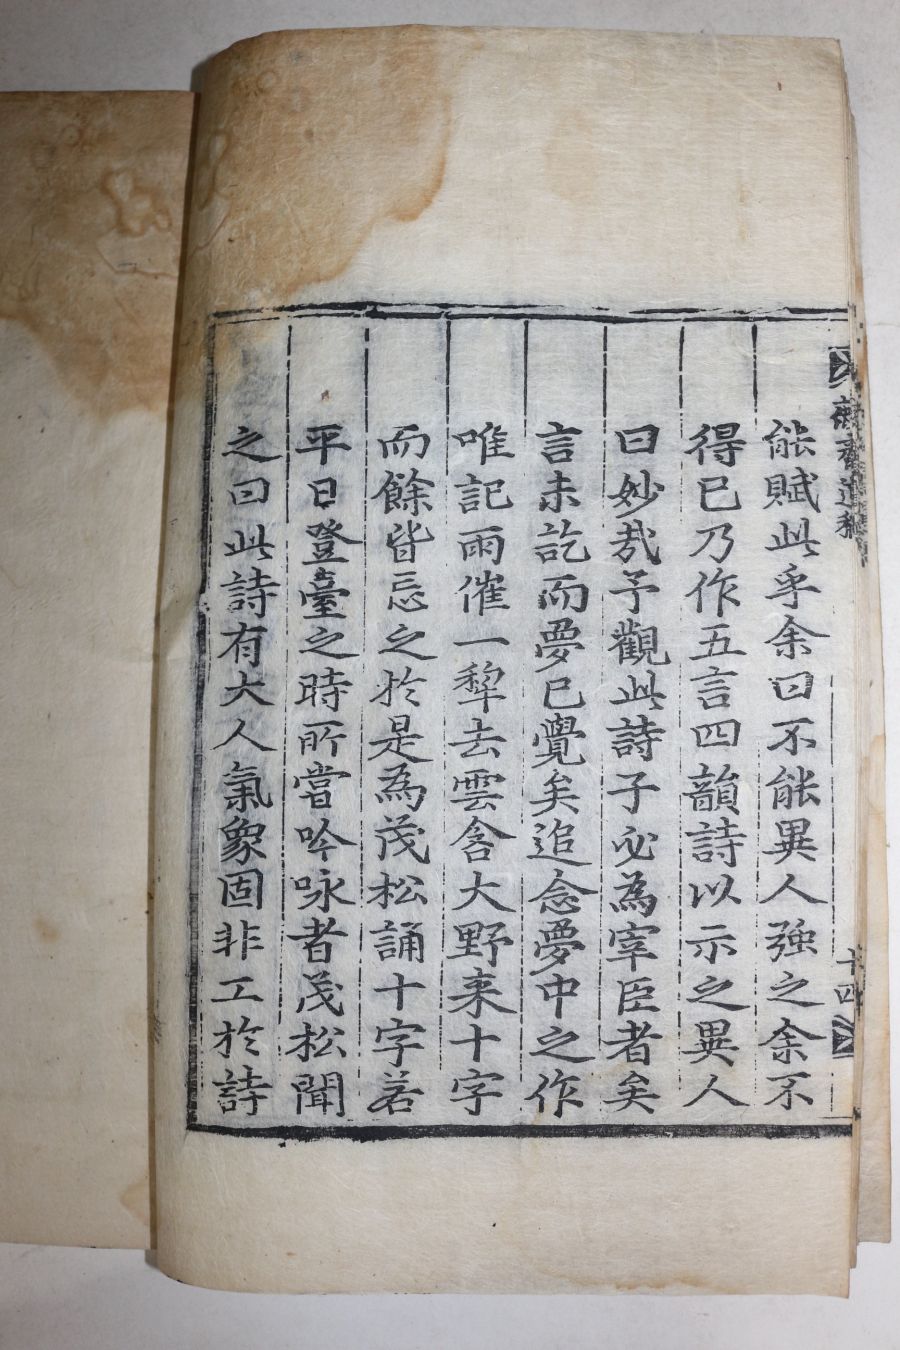 能賦此乎余曰不能異人強之余不
得已乃作五言四韻詩以示之異人
曰妙哉予觀此詩子必為宰臣者矣
言未訖而夢已覺矣追念夢中之作
唯記雨催一犂去雲含大野来十字
而餘皆忘之於是為茂松誦十字若
平日登臺之時所嘗吟咏者茂松聞
之曰此詩有大人氣象固非工於詩
十四